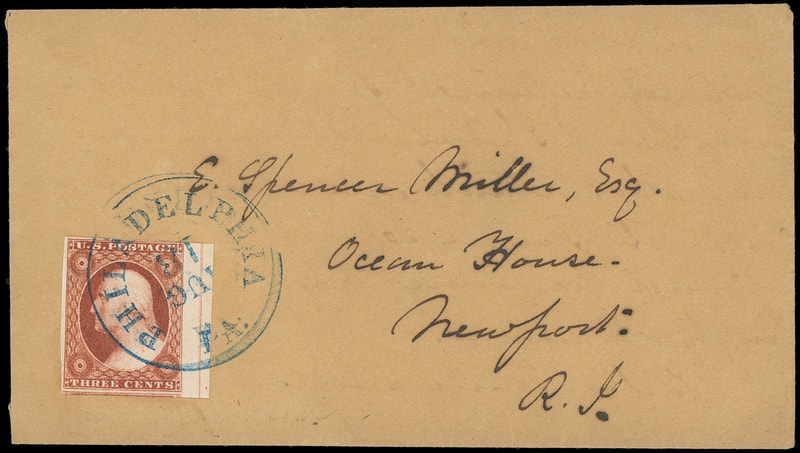 E. Spencer Miller, Esq.
Ocean House.
Newport.
R. I.
PHILADELPHIA
PA.
U.S. POSTAGE
THREE CENTS